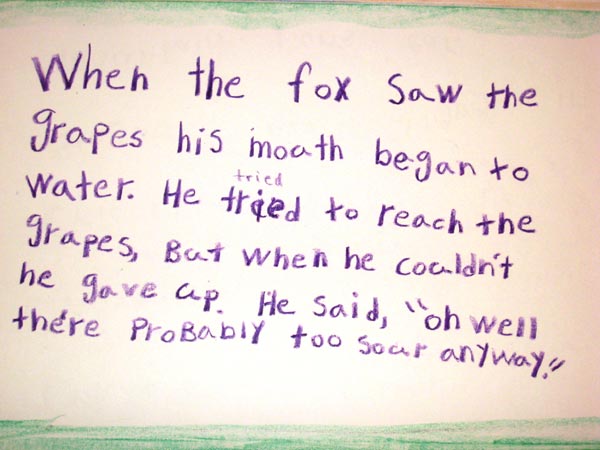 When the fox saw the
grapes his mouth began to
tried
water. He tried to reach the
grapes, But when he couldn't
he gave up. He said, "oh well
the're Probably too sour anyway."